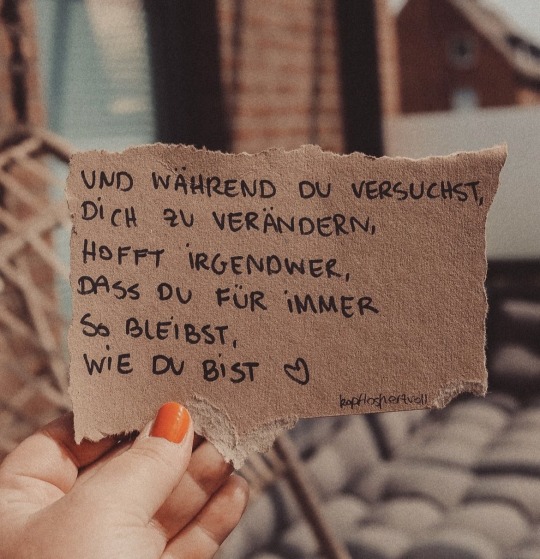 UND WÄHREND DU VERSUCHST,
DICH ZU VERÄNDERN,
HOFFT IRGENDWER,
DASS DU FÜR IMMER
SO BLEIBST,
WIE DU BIST